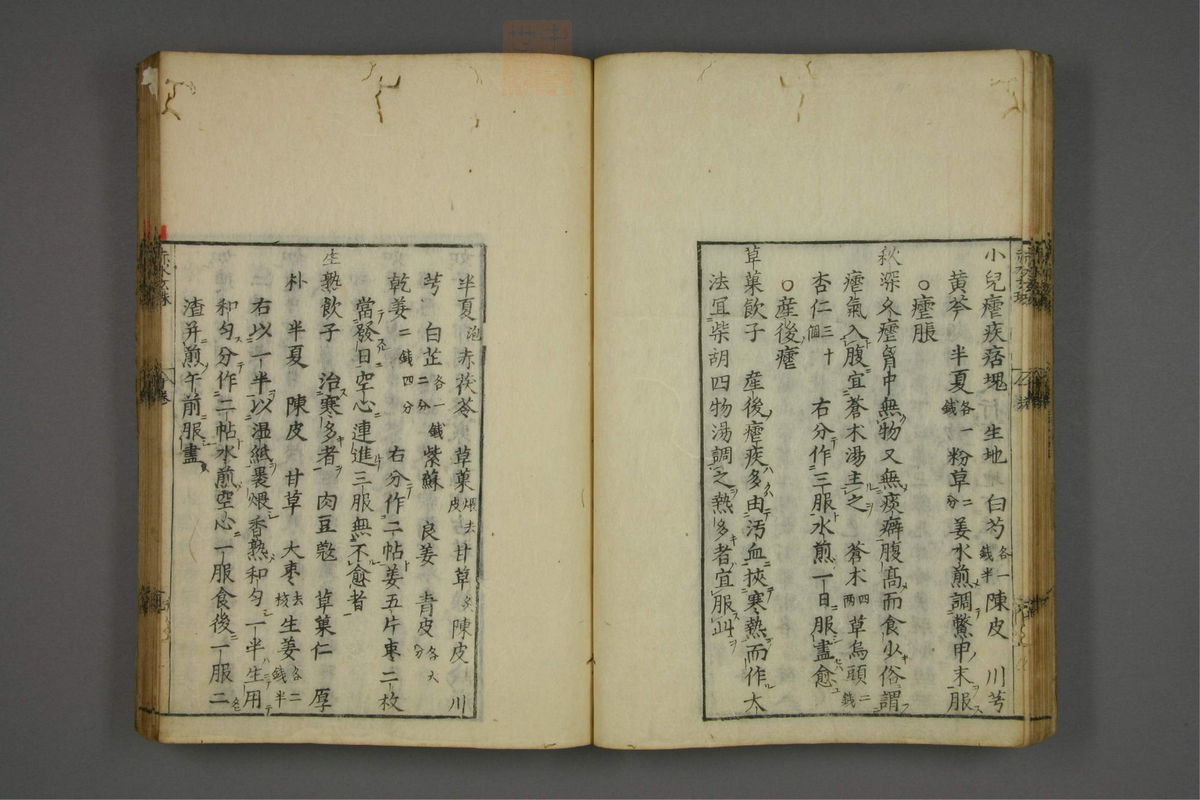 小兒瘧疾痞塊 生地 白芍各一錢半 陳皮 川芎
黄芩 半夏各一錢 粉草二分 姜水煎調鱉甲末服
○瘧脹
秋深久瘧胃中無物又無痰癖腹高而食少俗謂
瘧氣入腹宜蒼朮湯主之 蒼朮四兩 草烏頭二錢
杏仁三十個 右分作三服水煎一日服盡愈
○産後瘧
草菓飲子 産後瘧疾多由汚血挾寒熱而作大
法宜柴胡四物湯調之熱多者宜服此
半夏泡 赤茯苓 草菓煨去皮 甘草炙 陳皮 川
芎 白芷各一錢二分 紫蘇 良姜 青皮各六分
乾姜二錢四分 右分作二帖姜五片枣二枚
當發日空心連進三服無不愈者
生熟飲子 治寒多者 肉豆蔲 草菓仁 厚
朴 半夏 陳皮 甘草 大枣去核 生姜各二錢半
右以一半以温紙裹煨香熟和勻一半生用
和勻分作二帖水煎空心一服食後一服二
渣并煎午前服盡